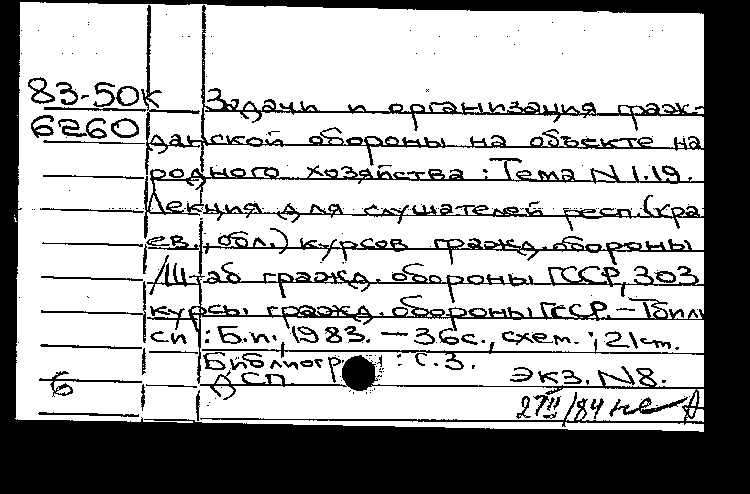 83-50к Задачи и организация граж-
6260 данской обороны на объекте на
родного хозяйства : Тема N 1.19.
Лекция для слушателей респ.(кра
ев., обл.) курсов гражд. обороны
/Штаб гражд. обороны ГССР, 303
курсы гражд. обороны ГССР. – Тбили
си : Б.и., 1983. – 36с., схем. ; 21 см.
Библиогр : с. 3.
6 ДСП экз. N8.